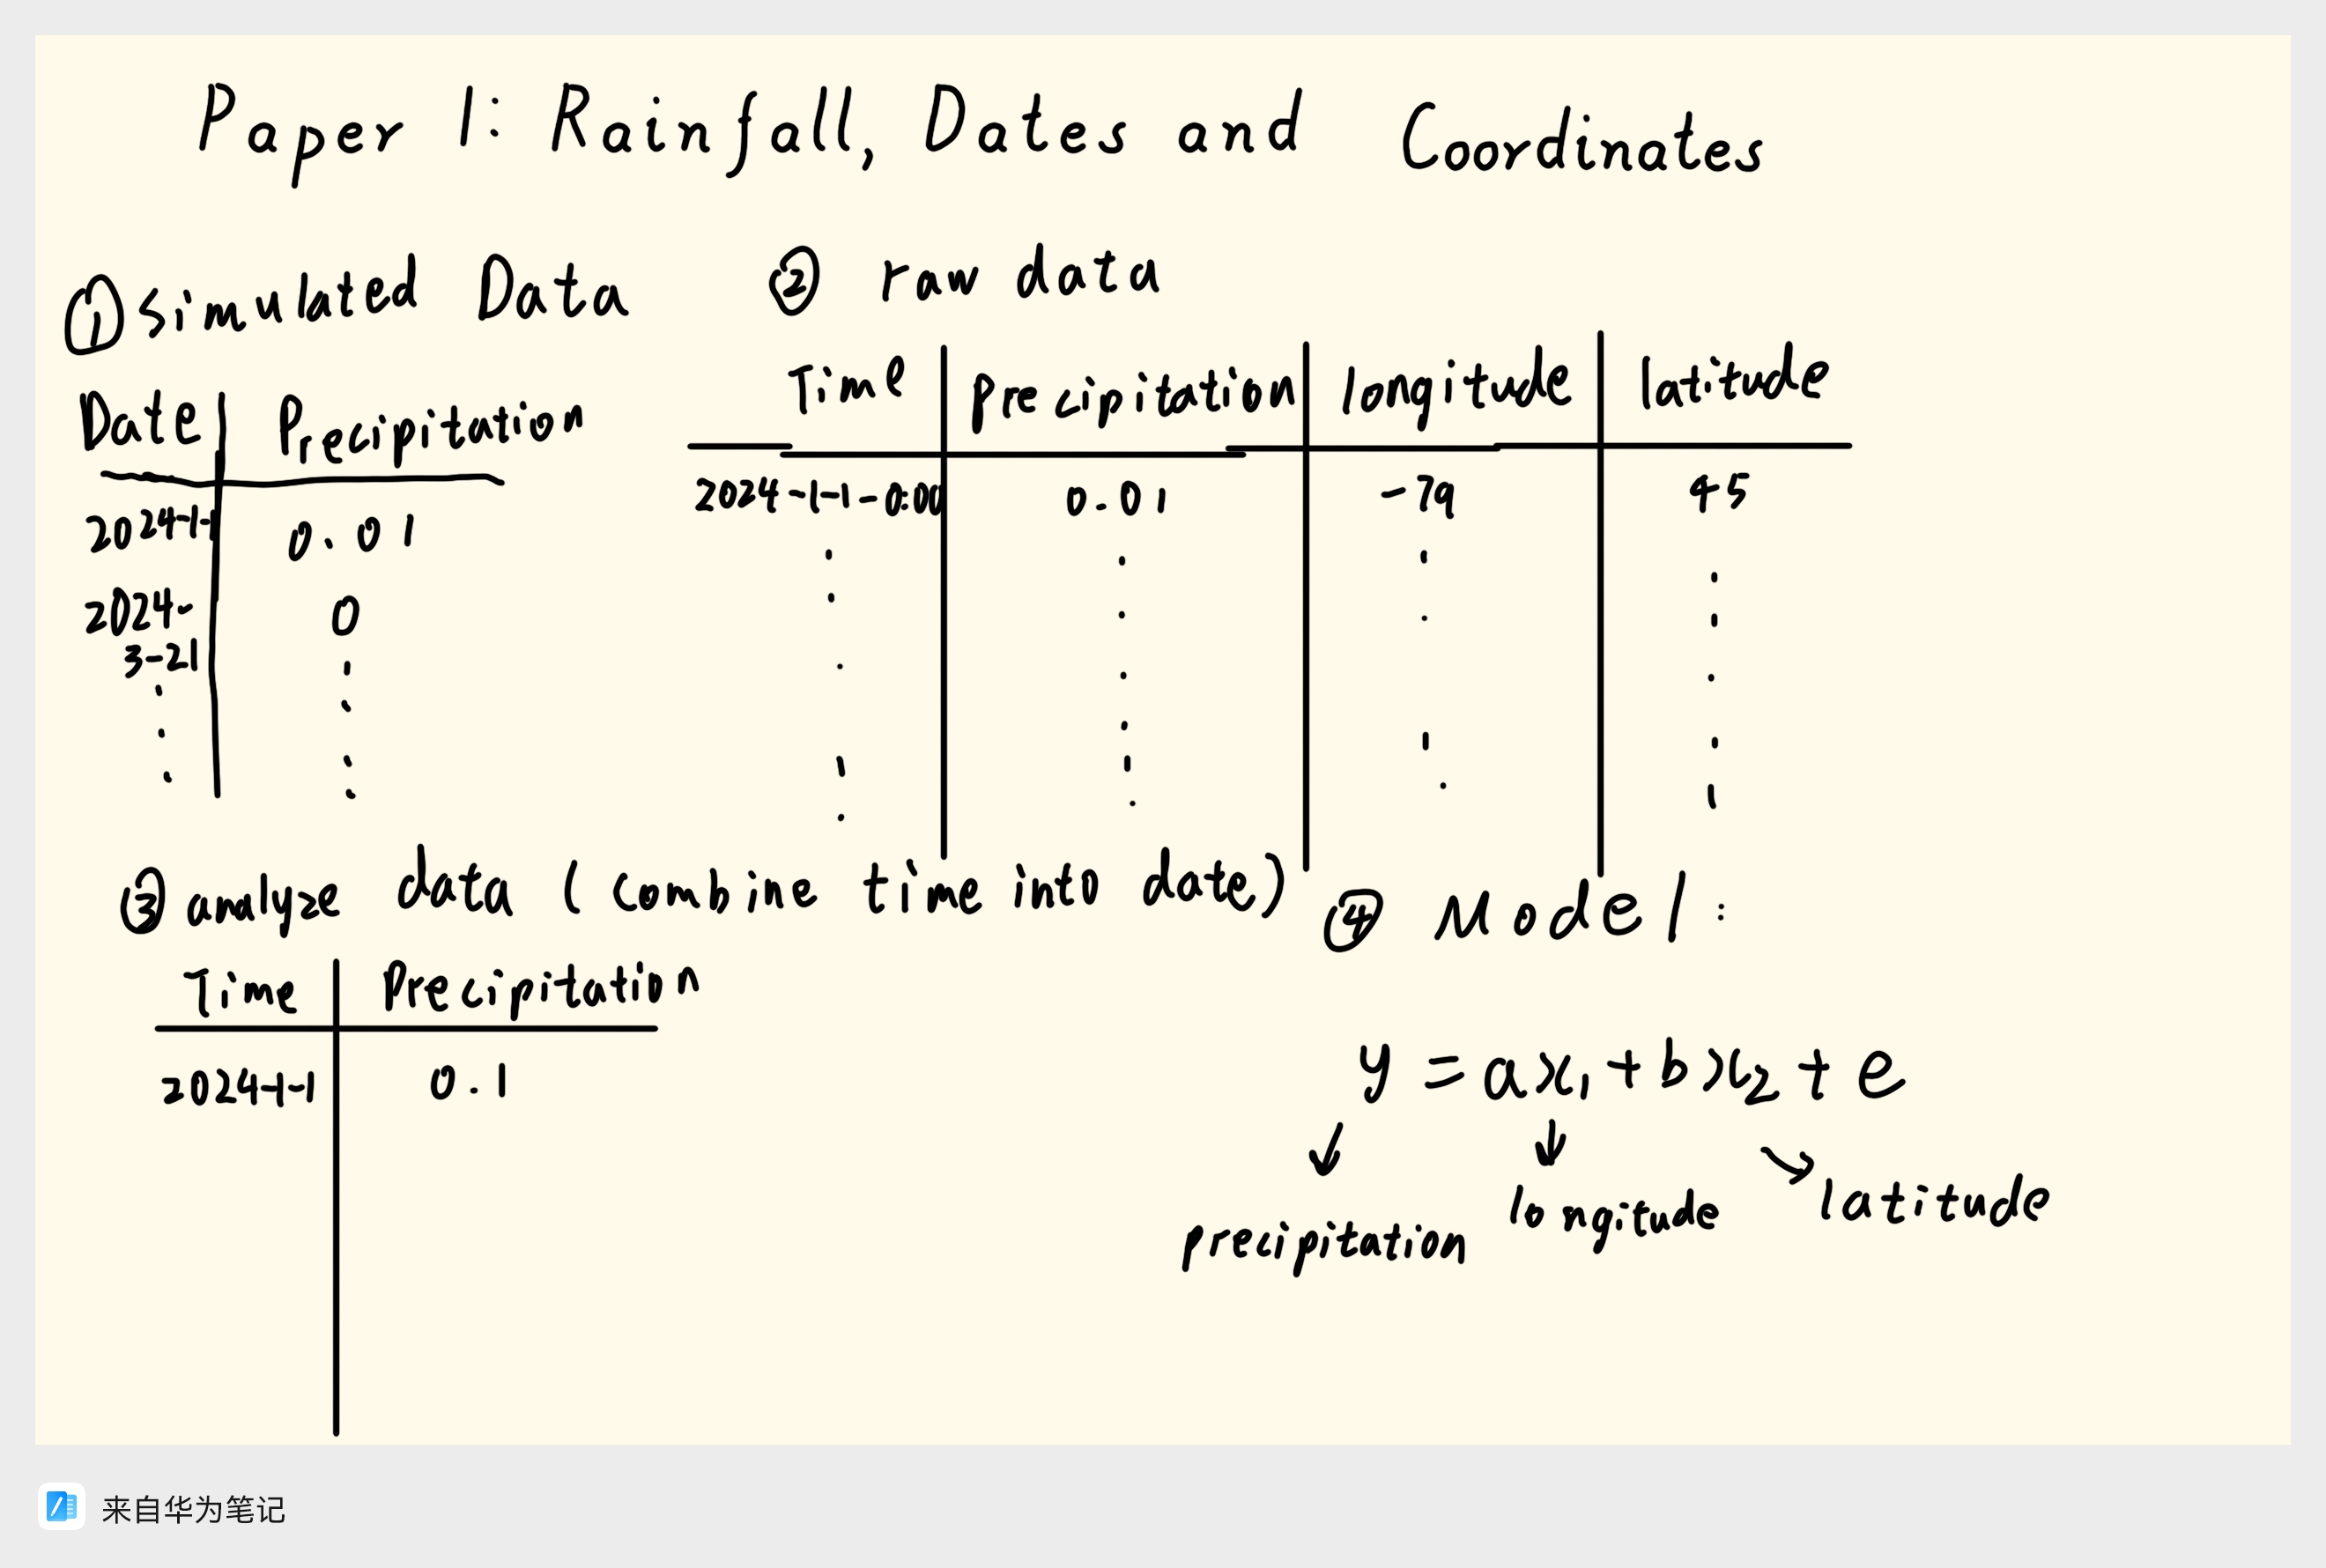 Paper 1: Rainfall, Dates and Coordinates
① simulated Data
Date Precipitation
2024-1-1 0.01
2024-3-21 0
② raw data
Time precipitation longitude latitude
2024-1-1-0:00 0.01 -79 45
③ analyze data (combine time into date)
Time Precipitation
2024-1-1 0.1
④ Model:
y = ax₁ + bx₂ + e
precipitation longitude latitude
来自华为笔记